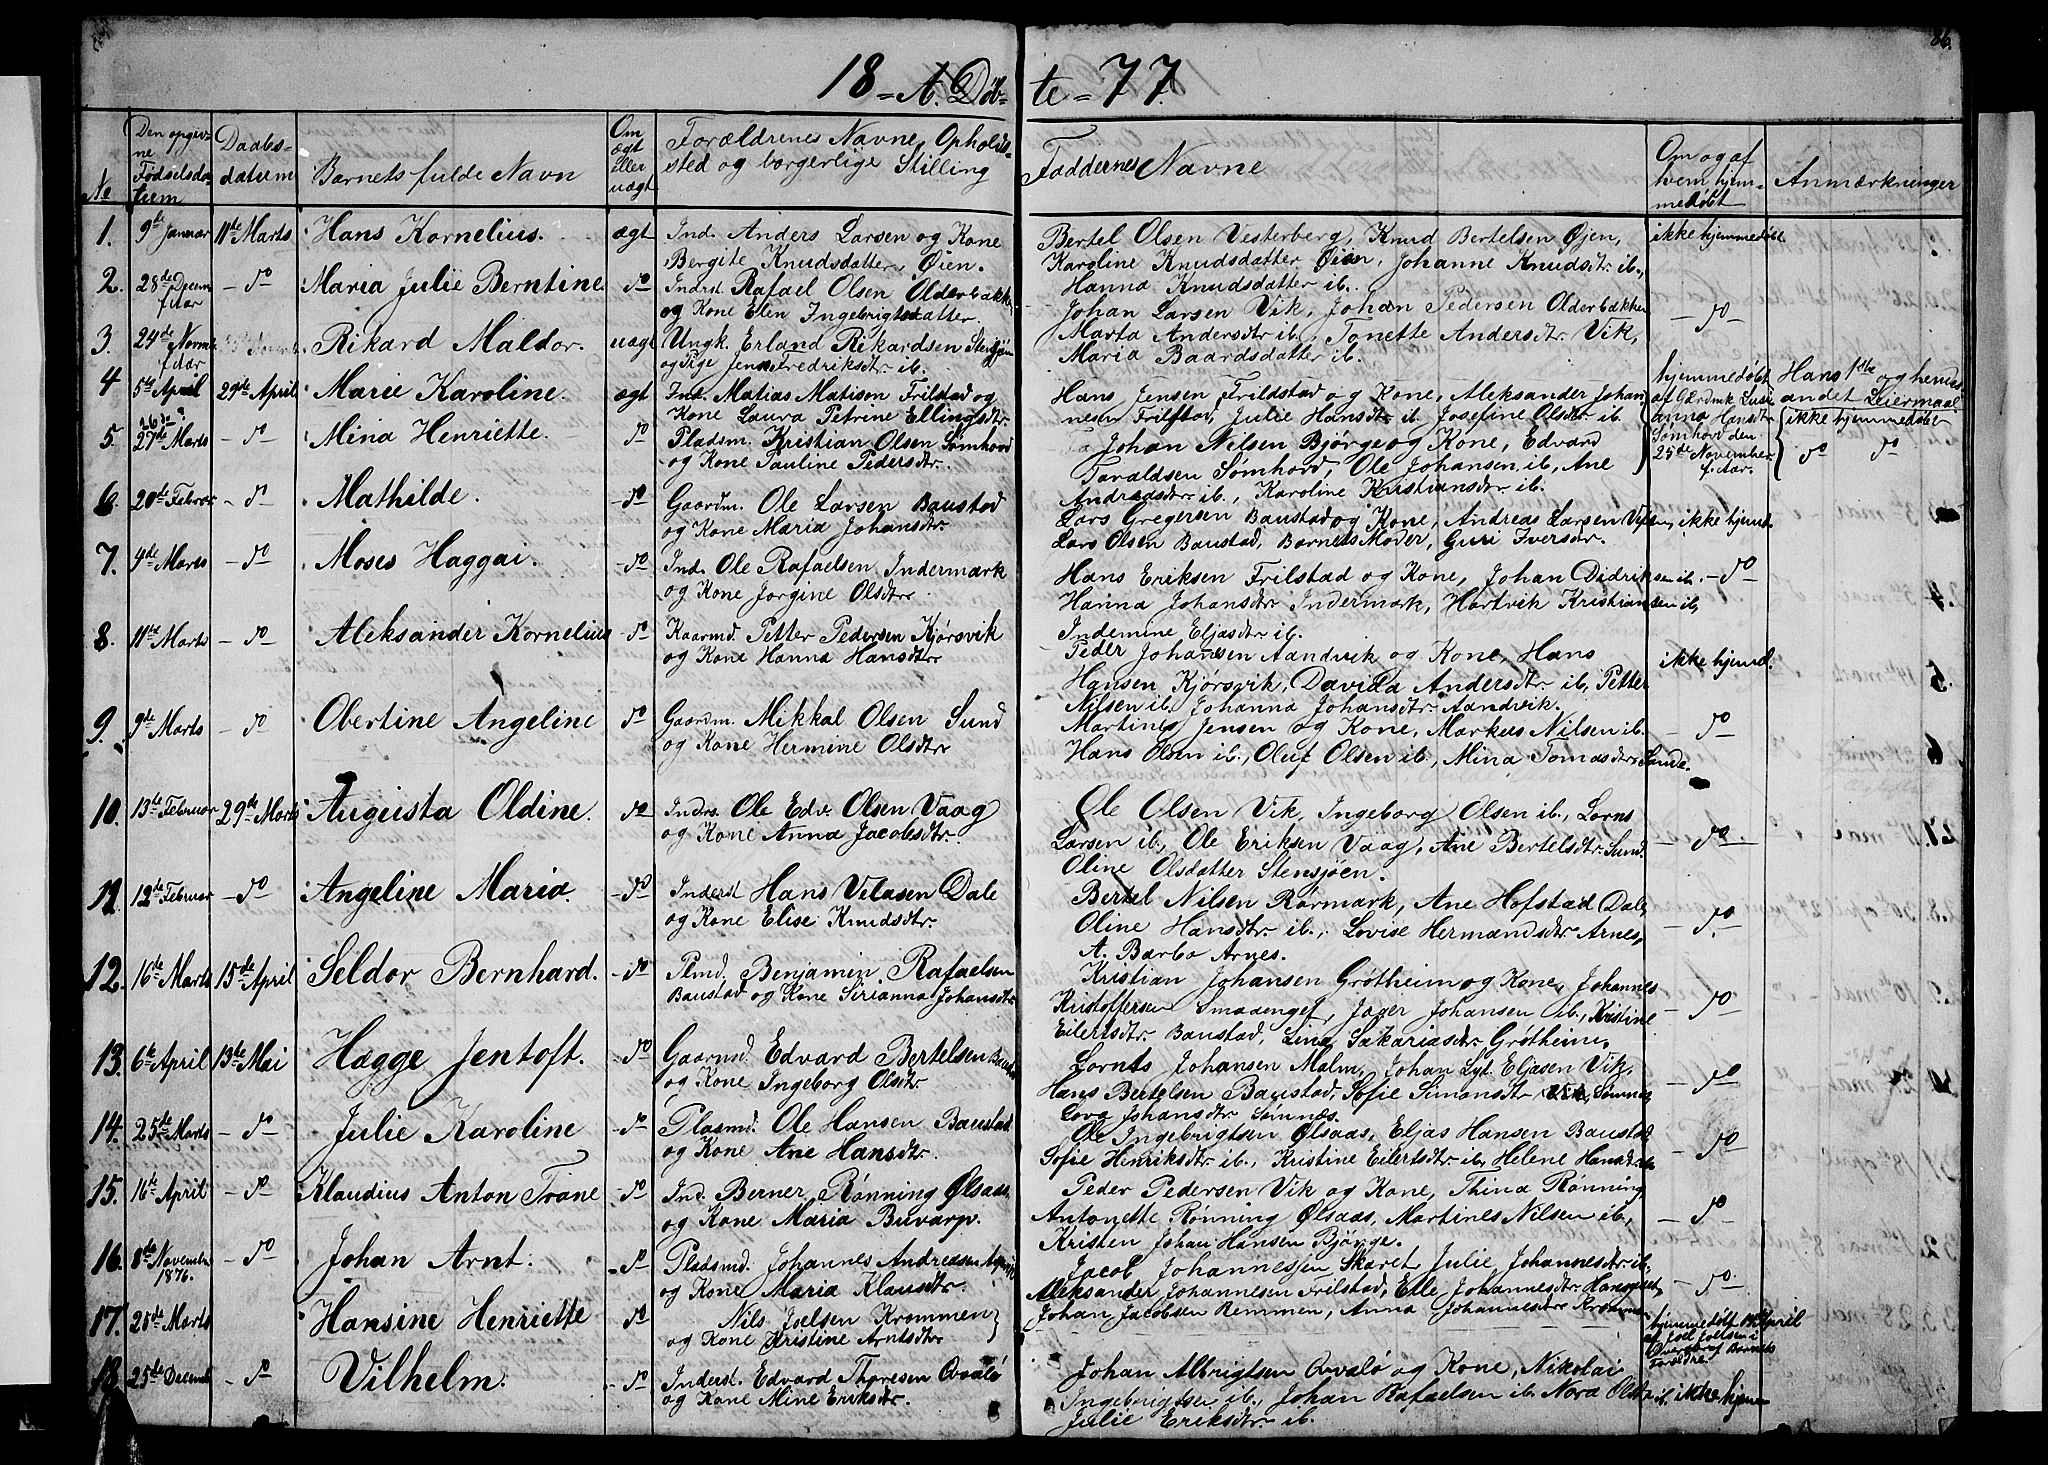 86.
18 = A. Døb= te = 77.
No
Den opgiv-
ne
Fødselsda-
tum
Daabs-
datum
Barnets fulde Navn
Om
ægt
eller
uægt
Forældrenes Navne, Opholds-
sted og borgerlige Stilling
Faddernes Navne
Om og af
hvem hjem-
medøbt
Anmærkninger
1. 9de Januar 11te Marts Hans Kornelius. ægt Ind. Anders Larsen og Kone
Bergite Knudsdatter, Øien.
Bertel Olsen Vesterberg, Knud Bertelsen Øjen, ikke hjemmedøbt.
Karoline Knudsdatter Øien, Johanne Knudsdtr ib.,
Hanna Knudsdatter ib.
2. 28de Decem f. Aar - do Maria Julie Berntine. do Indrst Rafael Olsen Olderbakke
og Kone Elen Ingebrigtsdatter.
Johan Larsen Vik, Johan Pedersen Olderbakken - do -
Marta Andersdtr ib., Tonette Andersdtr. Vik,
Maria Baardsdatter ib.
3. 24de Novmb. f. Aar Rikard Maldor. uægt Ungk. Erland Rikardsen
og Pige Fredriksdtr. ib.
4 5te April 29de April Marie Karoline. ægt Ind. Matias Matisen Frilstad og
Kone Laura Petrine Ellingsdtr.
Hans Jensen Frildstad og Kone, Aleksander Johan-
nesen Frilstad, Julie Hansdtr ib. Josefine Olsdtr ib.
hjemmedøbt
af Gaardmk
anna Hansdtr
Sømhovd den
25de November
f. Aar.
Hans 1ste og hendes
andet Leiermaal
ikke hjemmedøbt
do do
5. 27de Marts - do Mina Henriette. do Pladsm. Kristian Olsen Sømhovd
og Kone Pauline Pedersdtr.
Johan Nilsen Bjørge og Kone, Edvard
Toraldsen Sømhovd, Ole Johansen ib, Ane
Andreasdtr ib., Karoline Kristiansdtr. ib.
6. 20de Febr. - do Mathilde. - do Gaardm. Ole Larsen Baustad
og Kone Maria Johansdtr
Lars Gregersen Baustad og Kone, Andreas Larsen ikke hjemd.
Lars Olsen Baustad, Barnets Moder, Guri Iversdtr.
7. 4de Marts - do Moses Haggai. - do Ind. Ole Rafaelsen Indermark
og Kone Jorgine Olsdtr.
Hans Eriksen Frilstad og Kone, Johan Didriksen ib. - do
Hanna Johansdtr Indermark, Hartvik Kristiansen ib,
Indemine Eljasdtr ib.
8. 11te Marts - do Aleksander Kornelius do Kaarmd. Petter Pedersen Kjørsvik
og Kone Hanna Hansdtr
Peder Johansen Aandvik og Kone, Hans ikke hjemd.
Hansen Kjørsvik, Davida Andersdtr. ib., Petter
Nilsen ib., Johanna Johansdtr Aandvik.
9. 9de Marts - do Obertine Angeline do Gaardm. Mikkal Olsen Sund
og Kone Hermine Olsdtr
Martines Jensen og Kone, Markus Nilsen ib. - do
Hans Olsen ib., Oluf Olsen ib., Mina Tomasdtr Sund.
10. 13de Februar 29de Marts Augusta Oldine. - do Indrs. Ole Edv. Olsen Vaag
og Kone Anna Jacobsdtr.
Ole Olsen Vik, Ingeborg Olsen ib., Lorns
Larsen ib., Ole Eriksen Vaag, Ane Bertelsdtr. Sund. - do
Oline Olsdatter Stensjøen.
11. 12de Februar - do Angeline Maria. - do Inderst Hans Velasen Dale
og Kone Elise Knudsdtr.
Bertel Nilsen Rørmark, Ane Hofstad Dale,
Oline Hansdtr ib., Lovise Hermandsdtr Arnes, - do.
A. Barbo Arnes.
12. 16de Marts 15de April Seldor Bernhard. - do Plmd. Benjamin Rafaelsen
Baustad og Kone Sirianna Johansdtr
Kristian Johansen Grøtheim og Kone, Johannes
Kristoffersen Smaaenget, Jager Johansen ib., Kristine - do
Eilertsdtr. Baustad, Lina Sakariasdtr. Grøtheim.
13. 6te April 13de Mai Hagge Jentoft. - do Gaarmd. Edvard Bertelsen
og Kone Ingeborg Olsdtr
Lornts Johansen Malm, Johan Lyt. Eljasen Vik,
Hans Bertelsen Baustad, Sofie Simonsdtr Sømnes - do
Lova Johansdtr Sømnæs.
14. 25de Marts - do Julie Karoline - do Plasmd. Ole Hansen Baustad
og Kone Ane Hansdtr.
Ole Ingebrigtsen Ølsaas, Eljas Hansen Baustad
Sofie Henriksdtr ib., Kristine Eilertsdtr ib, Helene Hansdtr ib - do
15. 16de April - do Klaudius Anton Trane - do Ind. Berner Rønning Ølsaas,
og Kone Maria Buvarp.
Peder Pedersen Vik og Kone, Thina Rønning
Antonette Rønning Ølsaas, Martines Nilsen ib, - do
Kristen Johan Hansen Bjørge.
16. 8de Novembr 1876. - do Johan Arnt. - do Pladsmd. Johannes Andreasen
og Kone Maria Klausdtr.
Jacob Johannessen Skaret, Julie Johannesdtr ib.,
Aleksander Johannesen Frilstad, Elle Johannesdtr - do.
Johan Jacobsen Remmen, Anna Johannesdtr
17. 25de Marts Hansine Henriette do Nils Joelsen Krommen
og Kone Kristine Arntsdtr
hjemmedøbt April
af Joel Joelsen i
Barnets
Forældre.
18. 25de Decemb - do Vilhelm. - do Inderst. Edvard Thoresen Qvalø
og Kone Mine Eriksdtr.
Johan Albrigtsen Qvalø og Kone, Nikolai
Ingebrigtsen ib., Johan Rafaelsen ib. Nora Olsdtr ib. ikke hjem
Julie Eriksdtr. ib.